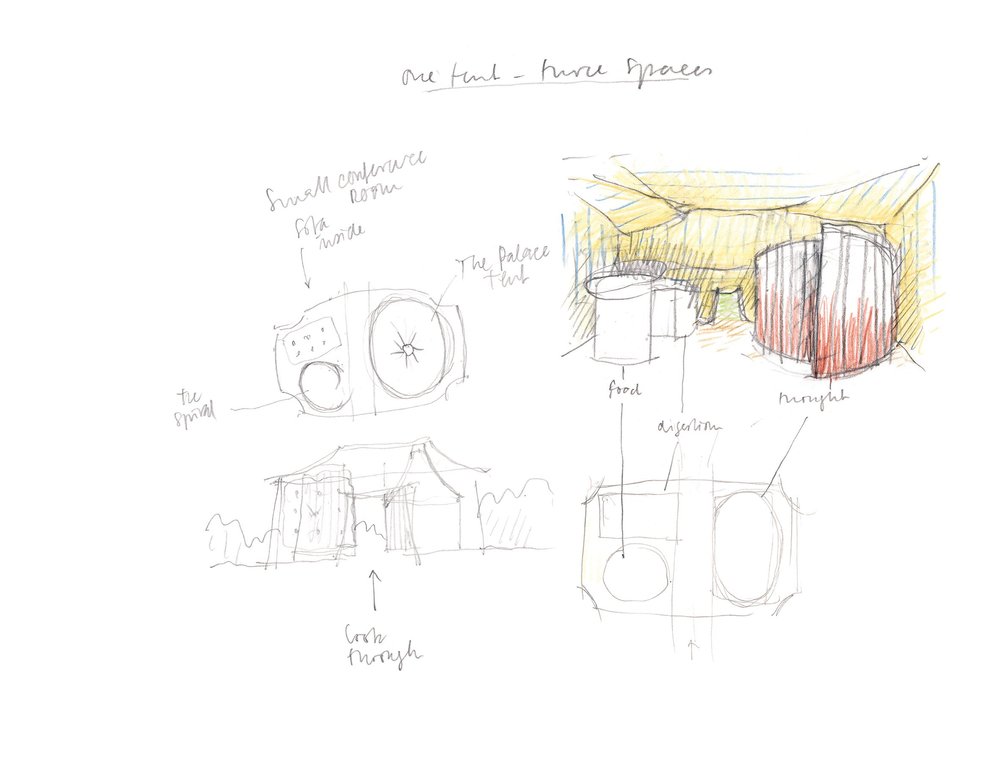 one tent - three spaces
Small conference
Room
Sofa
inside
The Palace
tent
the
spiral
food
digestion
thought
Look
through